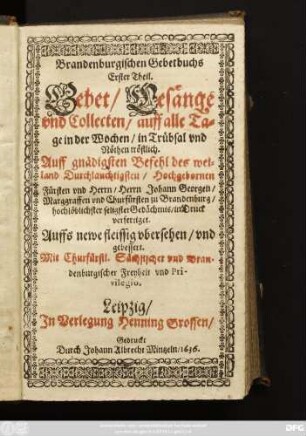 Brandenburgischen Gebetbuchs
Erster Theil.
Gebet/ Gesänge
vnd Collecten/ auff alle Ta-
ge in der Wochen/ in Trübsal vnd
Nöthen tröstlich.
Auff gnädigsten Befehl des wei-
land Durchlauchtigsten/ Hochgebornen
Fürsten vnd Herrn/ Herrn Johann Georgen/
Marggraffen vnd Churfürsten zu Brandenburg/
hochlöblichster seligster Gedächtnis/ in Druck
verfertiget.
Auffs newe fleissig vbersehen/ vnd
gebessert.
Mit Churfürstl. Sächsischer vnd Bran-
denburgischer Freyheit vnd Pri-
vilegio.
Leipzig/
In Verlegung Henning Grossen/
Gedruckt
Durch Johann Albrecht Mintzeln/ 1636.